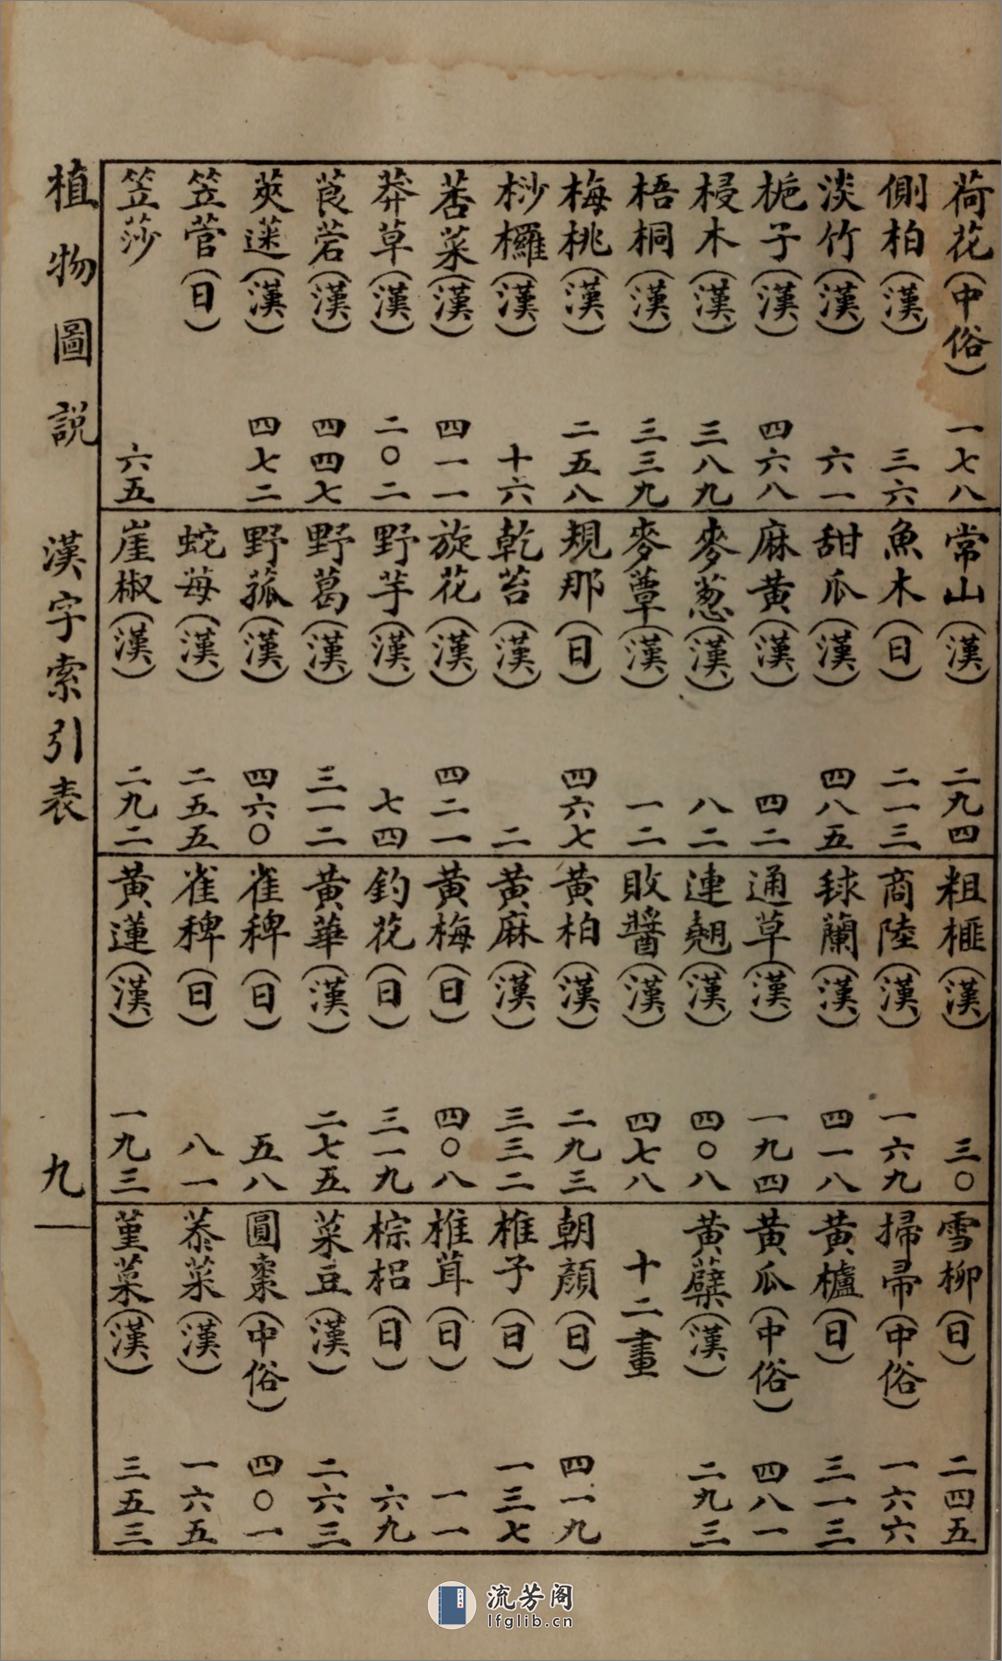 荷花(中俗) 一七八
側柏(漢) 三六
淡竹(漢) 六一
梔子(漢) 四六八
梫木(漢) 三八九
梧桐(漢) 三三九
梅桃(漢) 二五八
桫欏(漢) 十六
莕菜(漢) 四一一
莽草(漢) 二〇二
莨菪(漢) 四四七
莢蒾(漢) 四七二
笠菅(日)
笠莎 六五
常山(漢) 二九四
魚木(日) 二一三
甜瓜(漢) 四八五
麻黃(漢) 四二
麥葱(漢) 八二
麥蕈(漢) 一二
規那(日) 四六七
乾苔(漢) 二
旋花(漢) 四二一
野芋(漢) 七四
野葛(漢) 三一二
野菰(漢) 四六〇
蛇莓(漢) 二五五
崖椒(漢) 二九二
粗榧(漢) 三〇
商陸(漢) 一六九
毬蘭(漢) 四一八
通草(漢) 一九四
連翹(漢) 四〇八
敗醬(漢) 四七八
黃柏(漢) 二九三
黃麻(漢) 三三二
黃梅(日) 四〇八
釣花(日) 三一九
黃華(漢) 二七五
雀稗(日) 五八
雀稗(日) 八一
黃蓮(漢) 一九三
雪柳(日) 二四五
掃帚(中俗) 一六六
黃櫨(日) 三一三
黃瓜(中俗) 四八一
黃蘗(漢) 二九三
十二畫
朝顏(日) 四一九
椎子(日) 一三七
椎茸(日) 一一
棕梠(日) 六九
菜豆(漢) 二六三
圓棗(中俗) 四〇一
菾菜(漢) 一六五
堇菜(漢) 三五三
植物圖説 漢字索引表 九
流芳阁
lfglib.cn